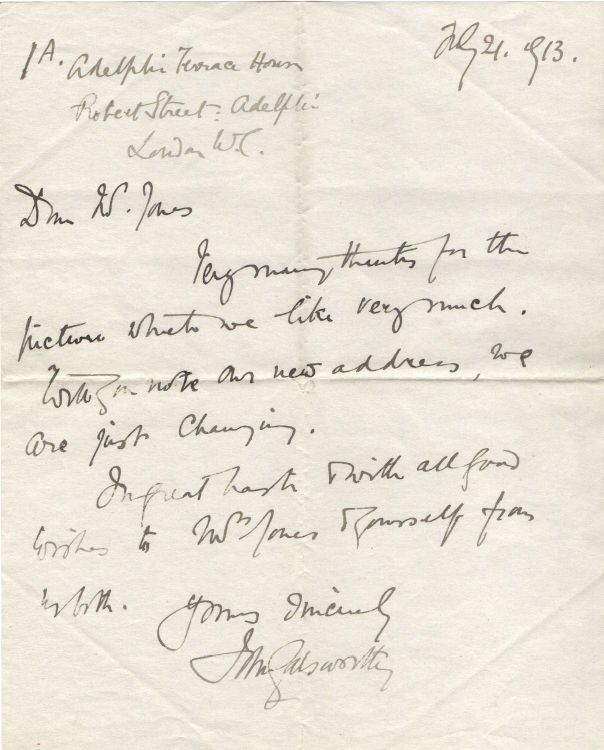 1A. Adelphi Terrace House
Robert Street: Adelphi
London W.C.
21. 1913.
Dear Mr. Jones
Very many thanks for the
picture which we like very much.
Will you note our new address, we
are just changing.
In great haste & with all good
wishes to Mrs Jones & yourself from
us both.
Yours sincerely
John Galsworthy